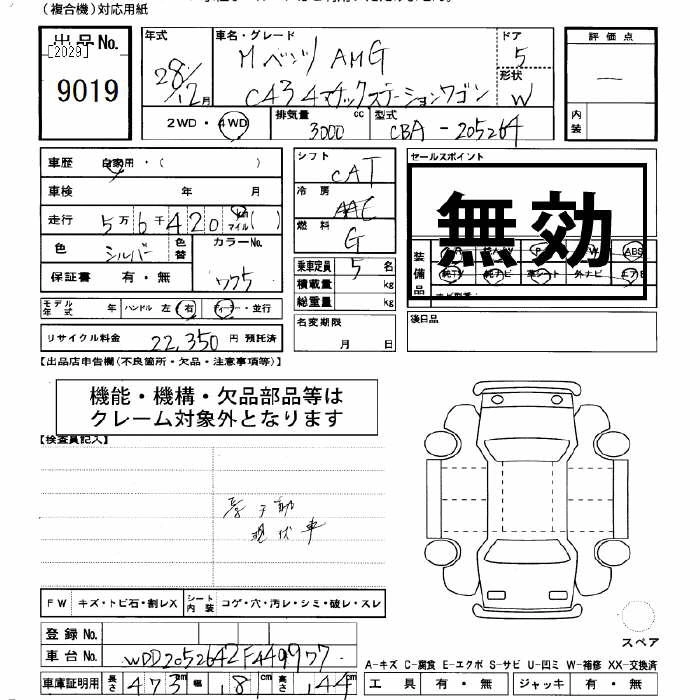 (複合機)対応用紙
出品No.
[2029]
9019
年式 28/12月
車名・グレード Mベンツ AMG
C43 4マチックステーションワゴン
ドア 5
形状 W
評価点
―
内装
2WD・4WD
排気量 3000 cc
型式 CBA-205264
車歴 自家用・( )
車検 年 月
走行 5万6千420 km マイル ( )
色 シルバー 色替 カラーNo. 775
保証書 有・無
モデル年式 年 ハンドル 左 右 ディーラー・並行
リサイクル料金 22,350円 預託済
シフト CAT
冷房 AAC
燃料 G
乗車定員 5 名
積載量 kg
総重量 kg
名変期限
月 日
セールスポイント
無効
装備品
ABS
純TV 純ナビ 革シート 外ナビ エアB
後日品
【出品店申告欄(不良箇所・欠品・注意事項等)】
機能・機構・欠品部品等は
クレーム対象外となります
【検査員記入】
現状車
FW キズ・トビ石・割レX シート内装 コゲ・穴・汚レ・シミ・破レ・スレ
登録No.
車台No. WDD2052642F449977
車庫証明用 長さ 473cm 幅 181cm 高さ 144cm
スペア
A-キズ C-腐食 E-エクボ S-サビ U-凹ミ W-補修 XX-交換済
工具 有・無 ジャッキ 有・無